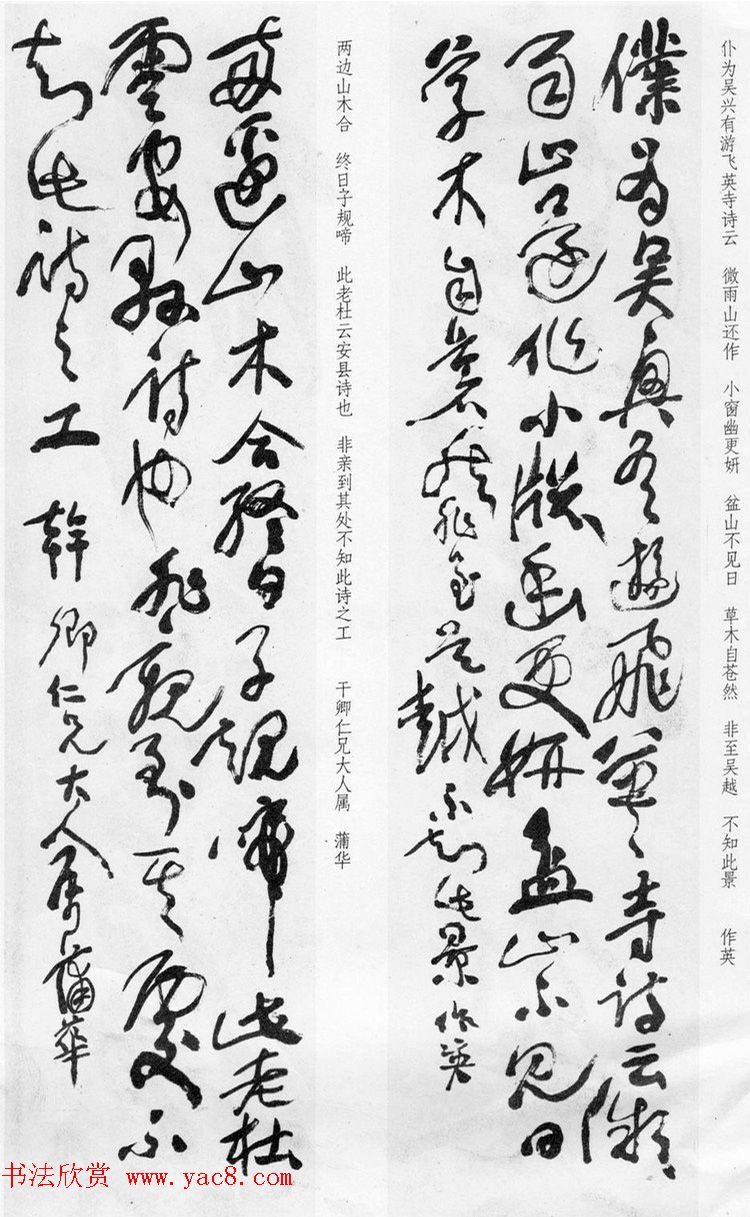 仆为吴兴有游飞英寺诗云 微雨山还作 小窗幽更妍 盆山不见日 草木自苍然 非至吴越 不知此景 作英
僕為吳興有遊飛英寺詩云微
雨止還作小牕幽更妍盆山不見日
草木自蒼然非至吳越不知此景作英
两边山木合 终日子规啼 此老杜云安县诗也 非亲到其处不知此诗之工 干卿仁兄大人属 蒲华
兩邊山木合終日子規啼此老杜
雲安縣詩也非親到其處不
知此詩之工 幹卿仁兄大人屬蒲華
书法欣赏 www.yac8.com